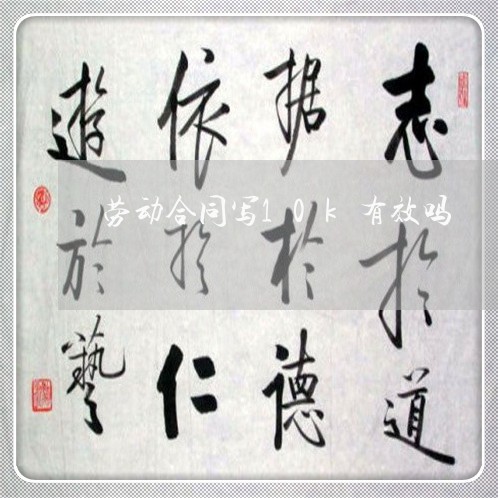 志於道
据於德
依於仁
遊於藝
劳动合同写10k 有效吗